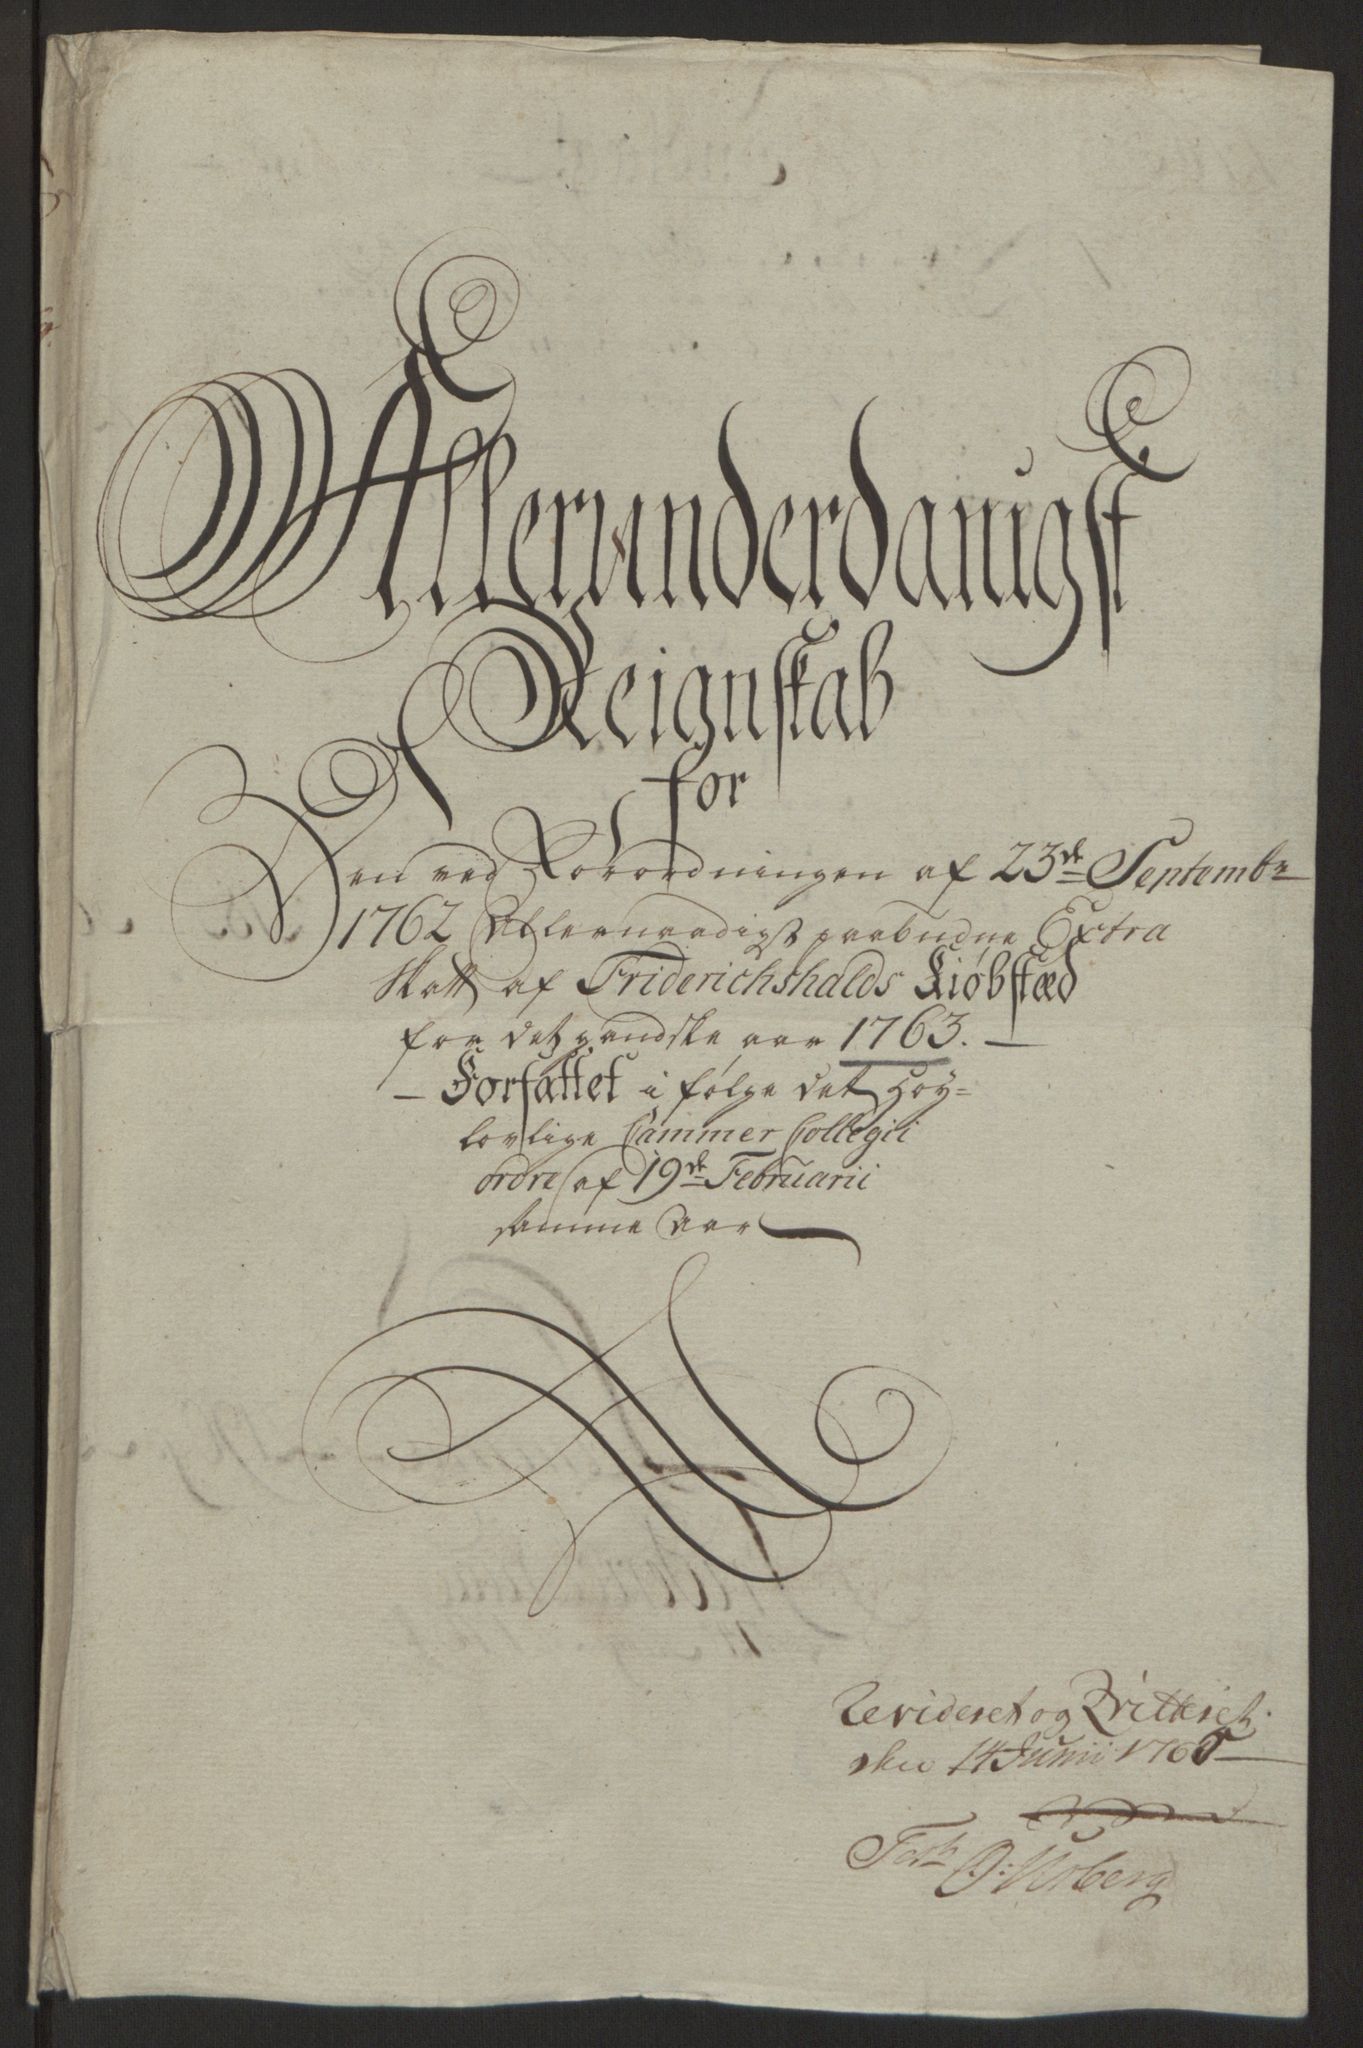 Allerunderdanigst
Reignskab
for
Den ved Forordningen af 23de Septembr
1762 Allernaadigst paabudne Extra
Skatt af Friderichshalds Kiøbstæd
for det gandske aar 1763.
Forfattet i følge det Høy-
lovlige Cammer Collegii
ordre af 19de Februarii
samme Aar
Revideret og Qvitteret
den 14 Junii 1765
Test